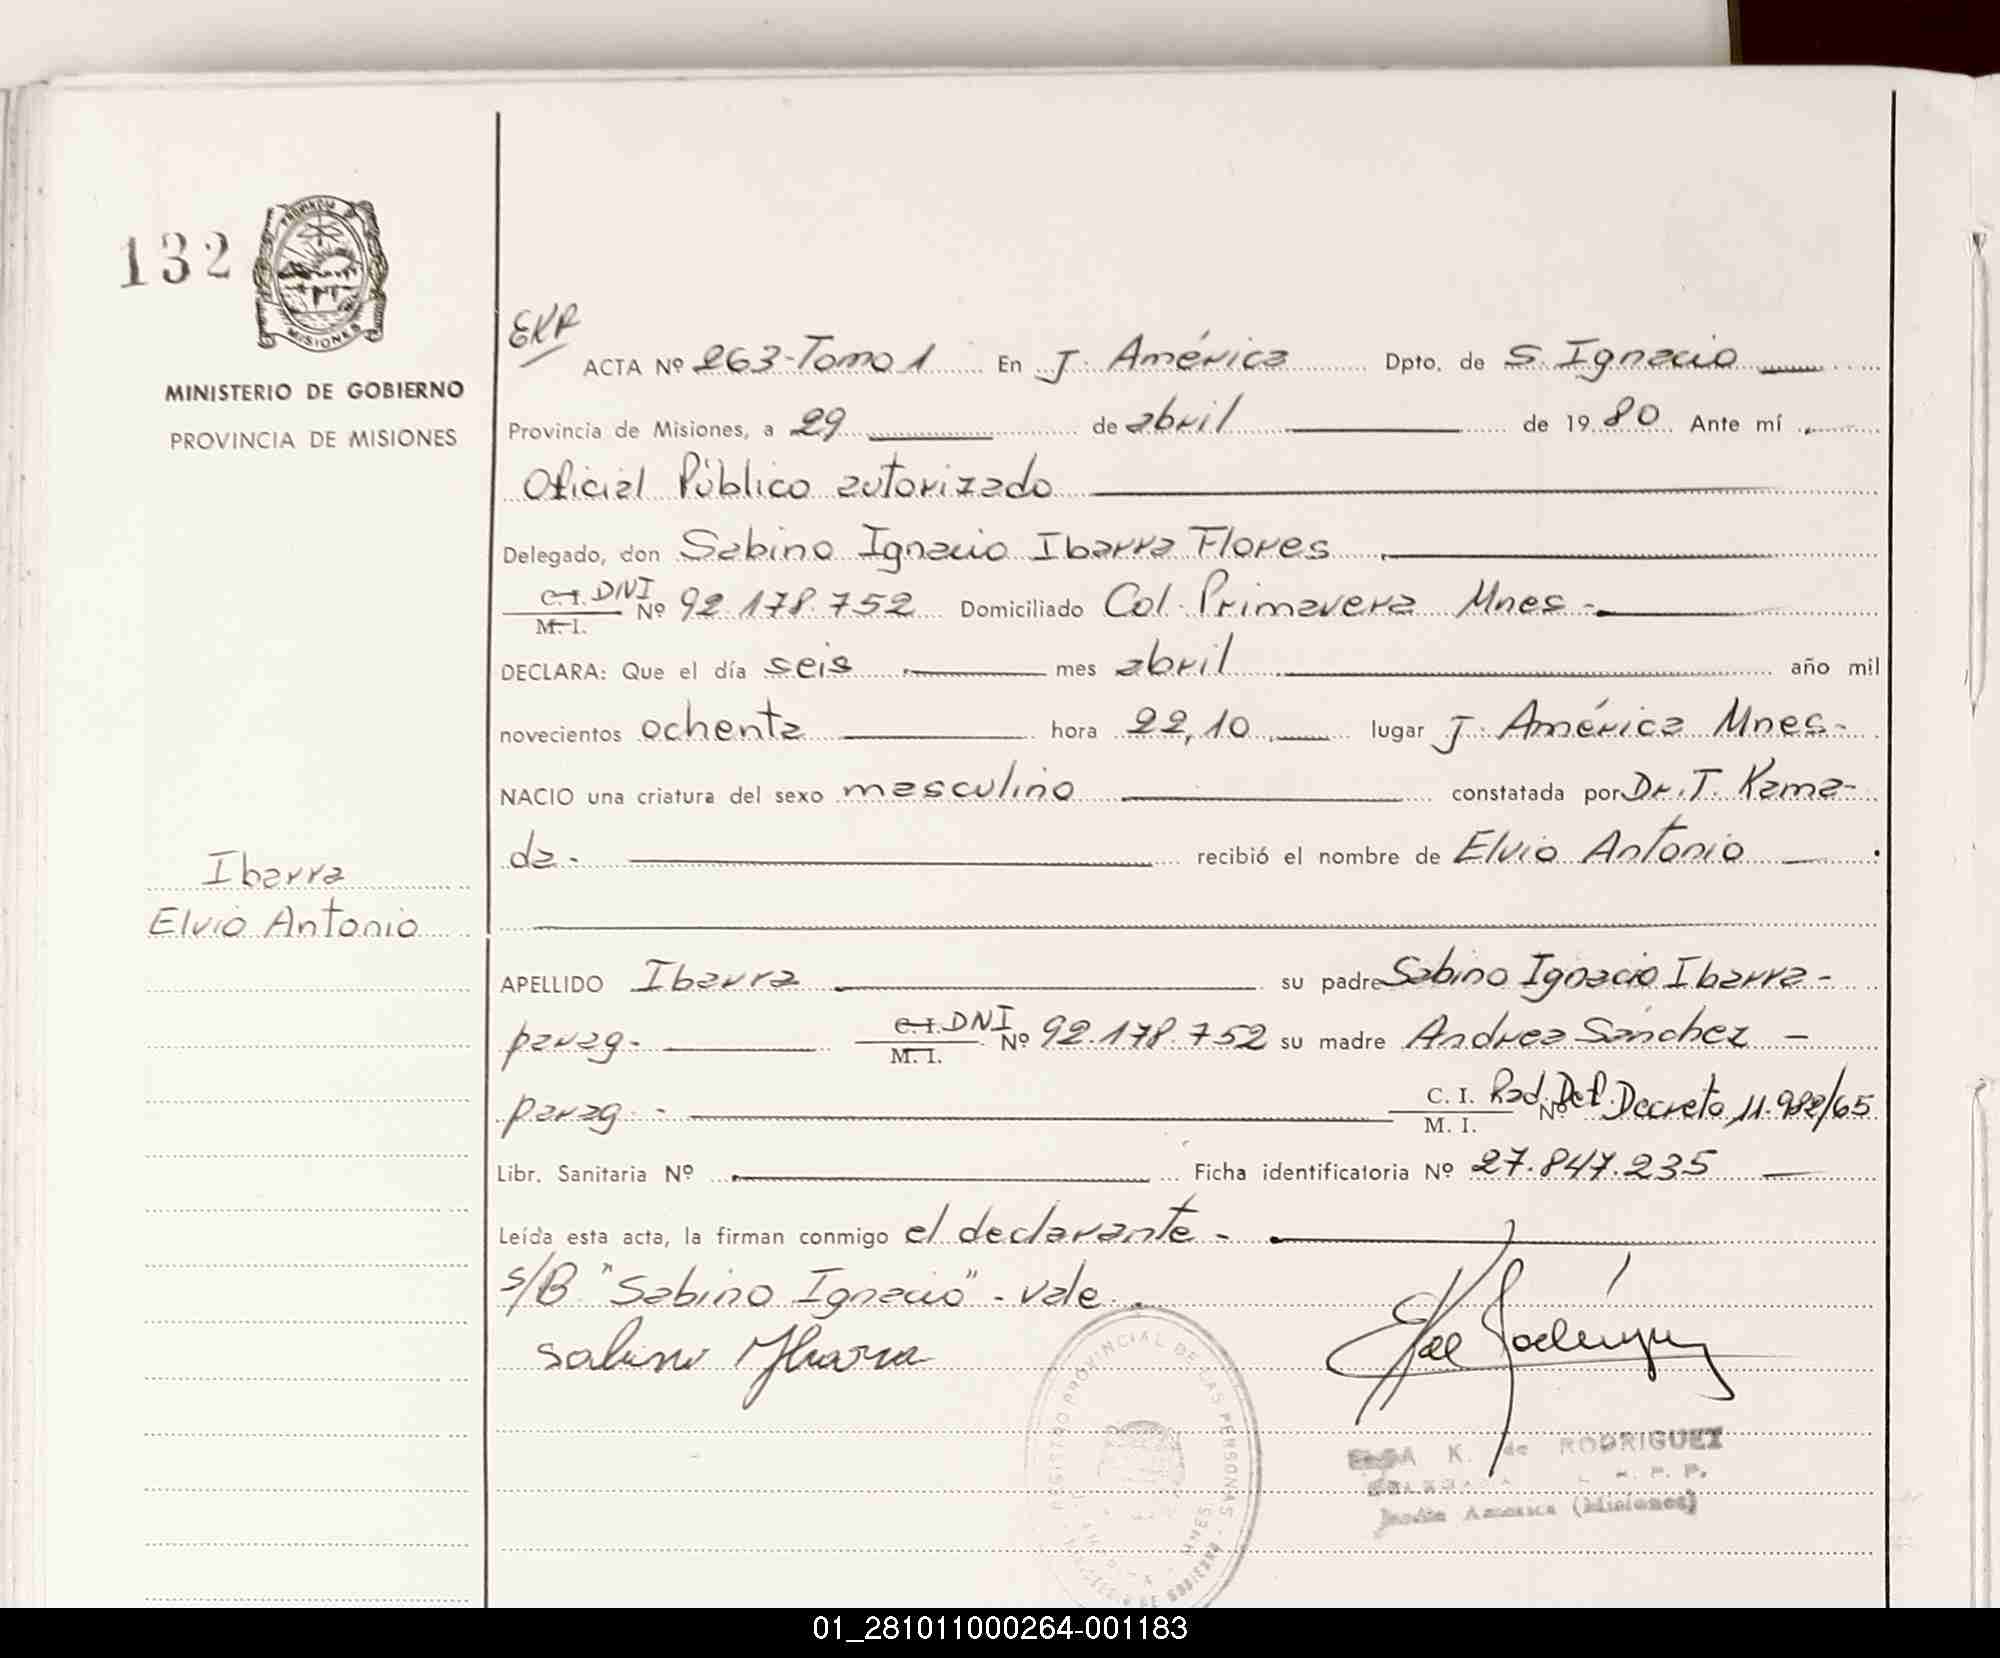 132
PROVINCIA
MISIONES
MINISTERIO DE GOBIERNO
PROVINCIA DE MISIONES
Ibarra
Elvio Antonio
EXP
ACTA Nº 263-Tomo 1 En J. América Dpto. de S. Ignacio
Provincia de Misiones, a 29 de abril de 1980 Ante mí
Oficial Público autorizado
Delegado, don Sabino Ignacio Ibarra Flores
C.I. DNI
M. I. Nº 92.178.752 Domiciliado Col. Primavera Mnes-
DECLARA: Que el día seis mes abril año mil
novecientos ochenta hora 22,10 lugar J. América Mnes-
NACIO una criatura del sexo masculino constatada por Dr. T. Kama-
da- recibió el nombre de Elvio Antonio
APELLIDO Ibarra su padre Sabino Ignacio Ibarra-
parag- C.I. DNI M. I. Nº 92.178.752 su madre Andrea Sánchez -
parag.- C. I. M. I. Rad. Def. Nº Decreto 11.982/65
Libr. Sanitaria Nº Ficha identificatoria Nº 27.847.235
Leída esta acta, la firman conmigo el declarante -
s/B "Sabino Ignacio" - vale.
Sabino Ibarra
REGISTRO PROVINCIAL DE LAS PERSONAS
K. de RODRIGUEZ
Jardín America (Misiones)
01_281011000264-001183